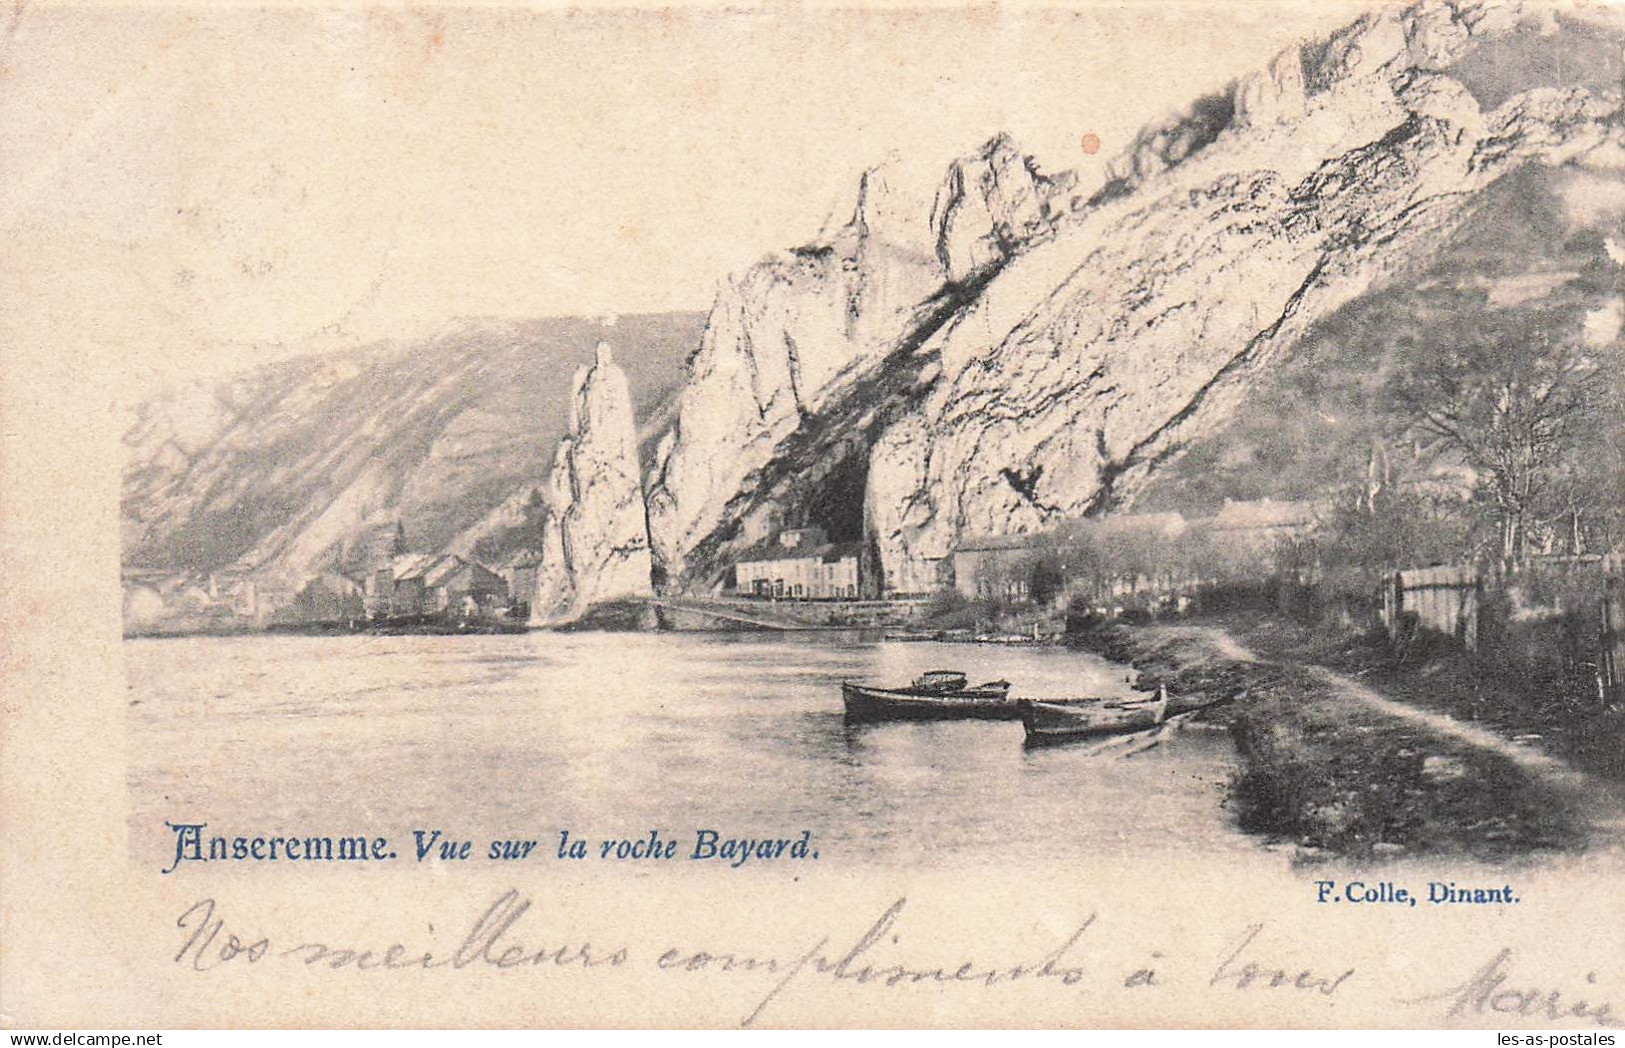 Anseremme. Vue sur la roche Bayard.
F. Colle, Dinant.
Nos meilleurs compliments à tous Marie
www.delcampe.net
les-as-postales